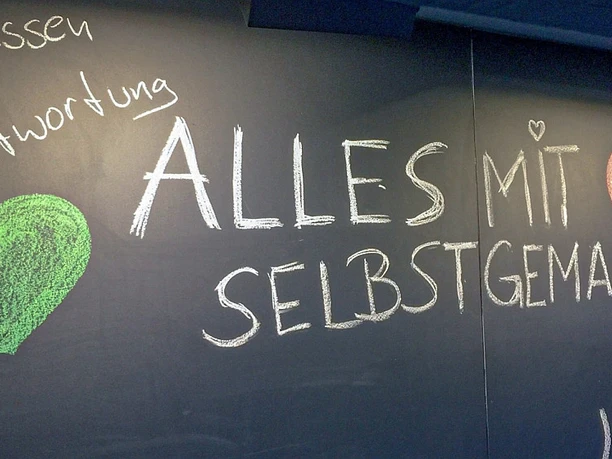 ssen
twortung
ALLES MIT
SELBSTGEMA